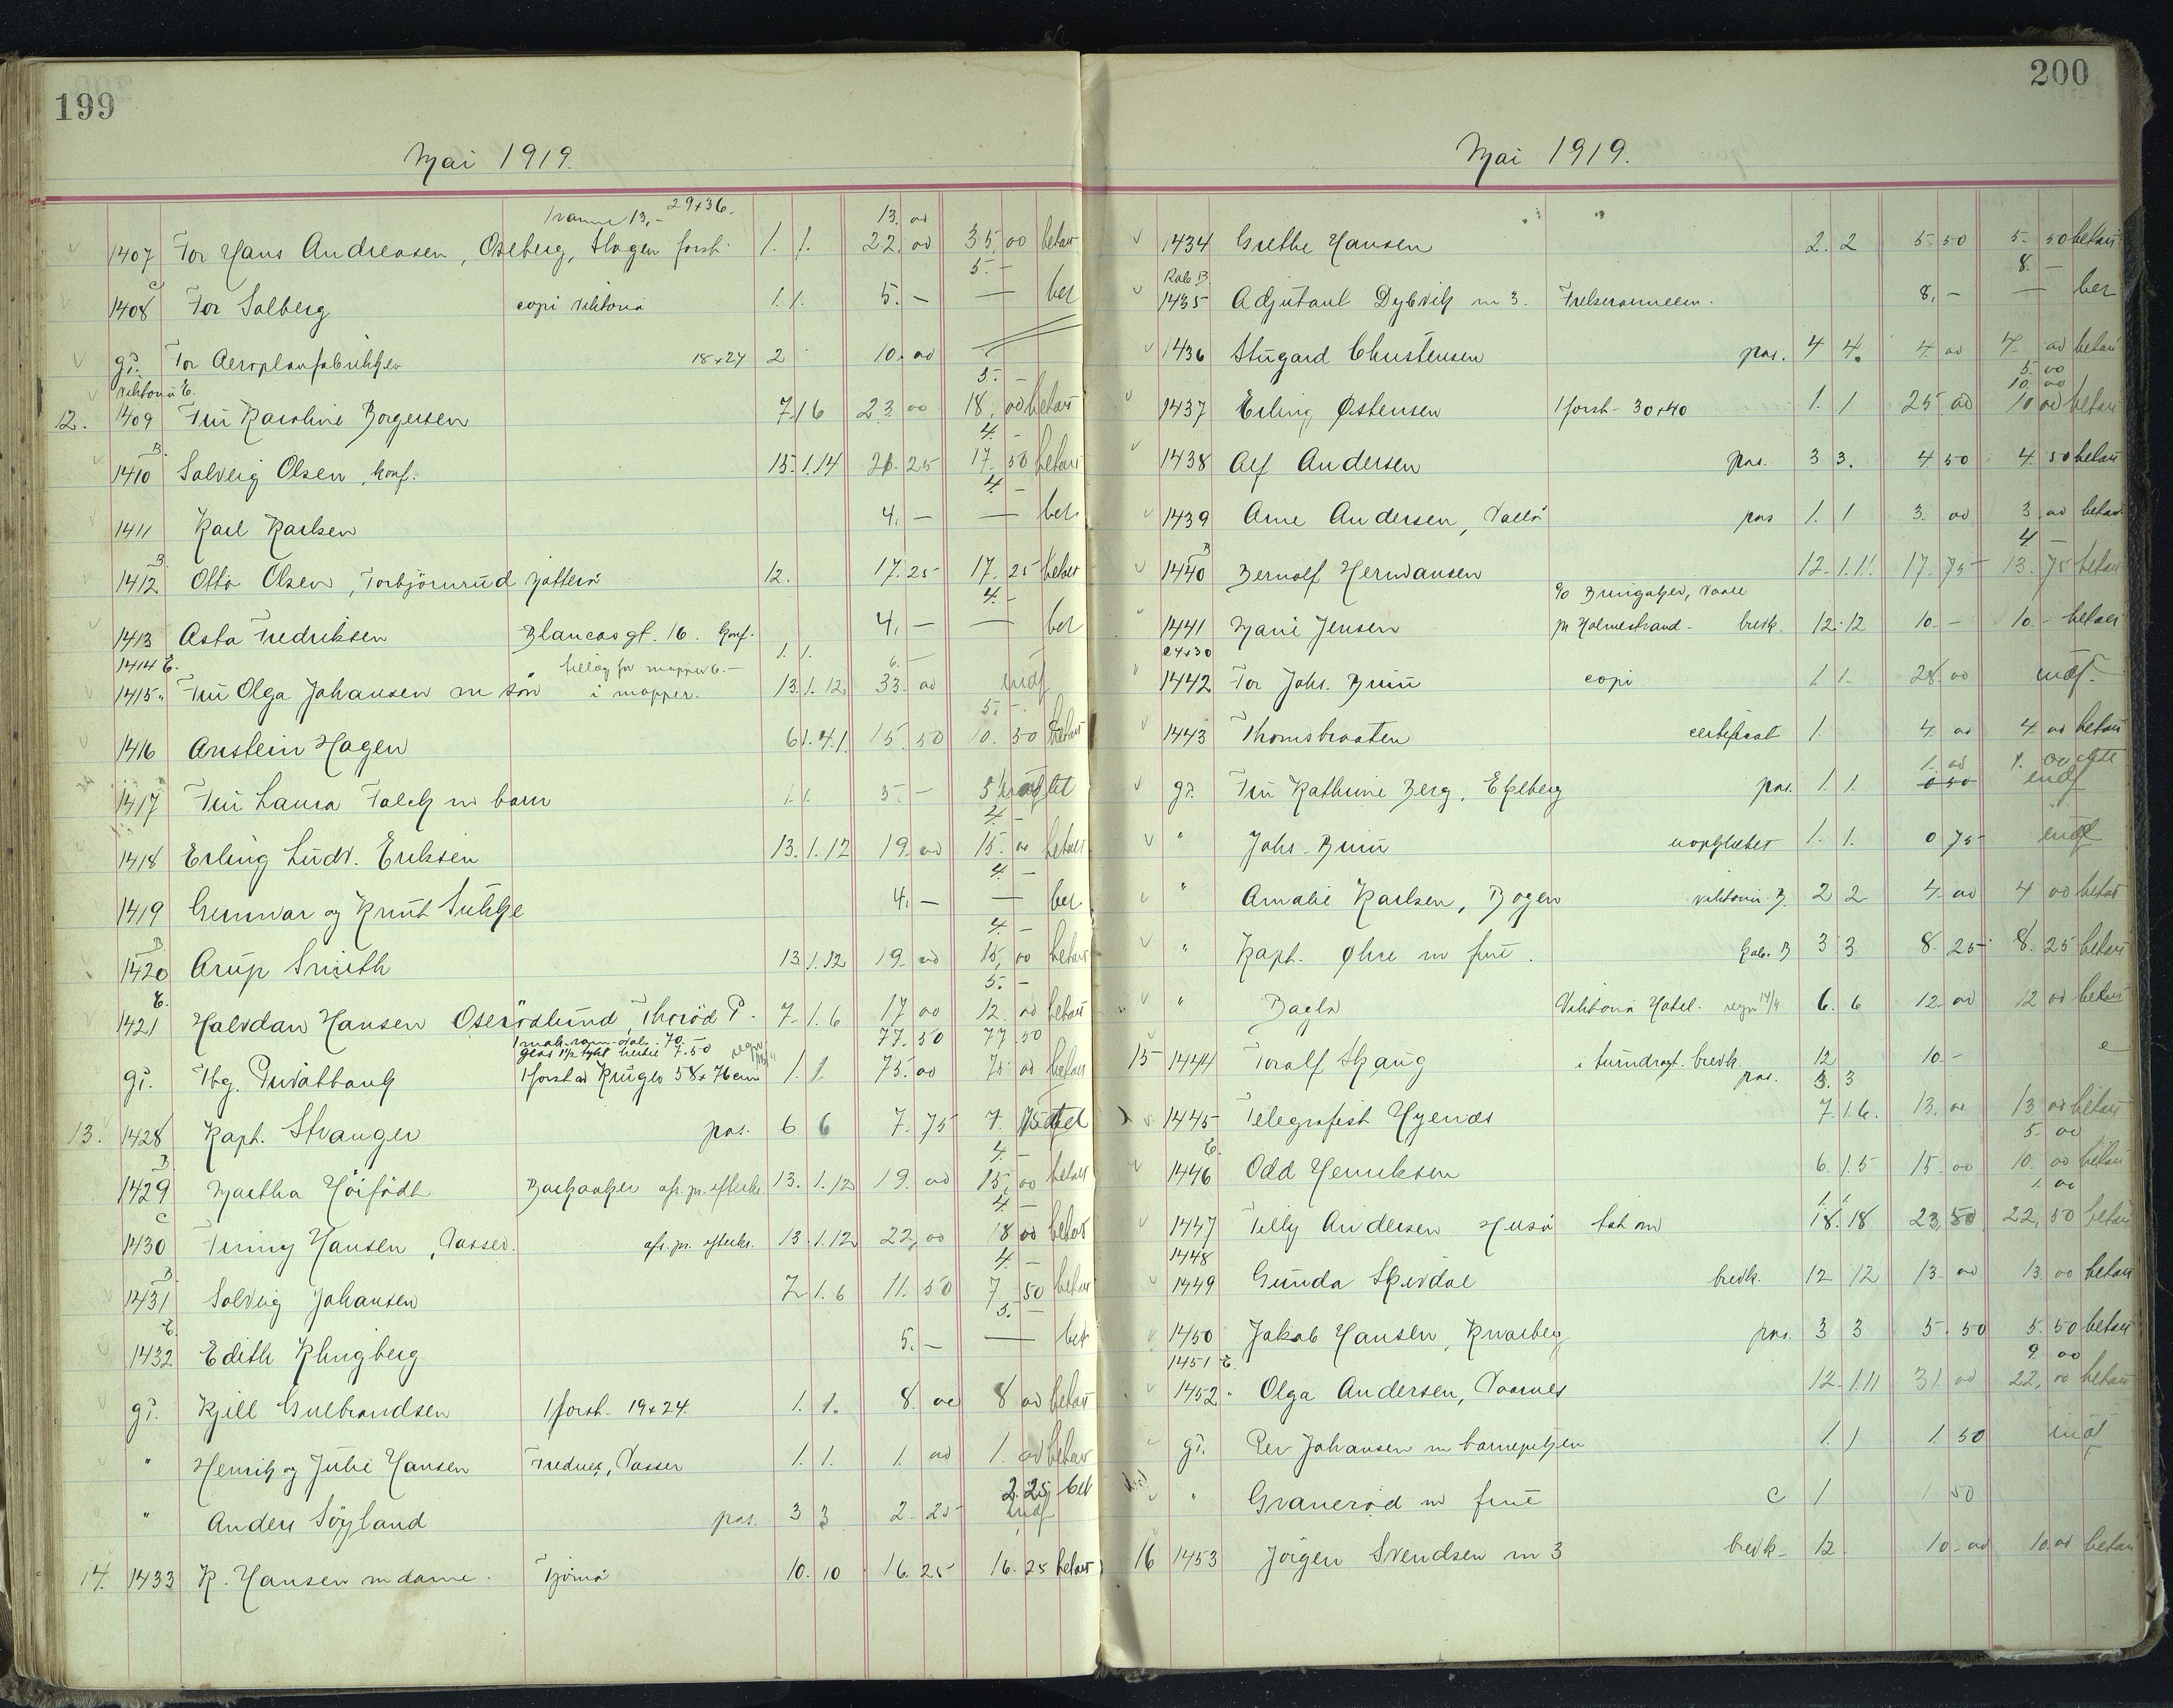 199
Mai 1919.
1 ramme 13,- 29x36. 13. 00
1407 For Hans Andreasen, Oseberg, Slagen forst. 1. 1. 22. 00 35,00 betalt
5.-
1408 c For Solberg copi Viktoria 1. 1. 5.- — bet
gl. For Aeroplanfabrikken 18x24 2 10.00 —
Viktoria E. 5.-
12. 1409 Fru Karoline Borgersen 7.1 6 23 00 18,00 betalt
4.-
1410 B Solveig Olsen, konf. 15.1.14 21.25 17.50 betalt
4.-
1411 Karl Karlsen 4.- — bet
1412 B Otto Olsen, Torbjörnrud Nötterö 12. 17.25 17.25 betalt
4.-
1413 Asta Fredriksen Blancasgt. 16. konf. 4.- — bet
1414 E. tillæg for mapper 6.- 1. 1. 6.-
1415 " Fru Olga Johansen m sön i mapper. 13.1.12 33.00 indf
5.-
1416 Anstein Hagen 6 1.4.1 15.50 10.50 betalt
1417 Fru Laura Falck m barn 1. 1. 5.- 5
4.-
1418 Erling Ludv. Eriksen 13.1.12 19.00 15.00 betalt
4.-
1419 Gunnar og Knut Sukke 4.- — bet
4.-
1420 B Arup Smith 13.1.12 19.00 15,00 betalt
5.-
1421 E. Halvdan Hansen Oserödlund, Thoröd P. 7.1.6 17 00 12.00 betalt
1 mah. ram. oval. 70.- 77.50 77.50
glas 1 1/2 tykt 7.50
gl. Tbg. Privatbank 1 forst av Kruge 58x76cm 1. 1. 75.00 75.00 betalt
13. 1428 Kapt. Stranger pas. 6 6 7.75 7.75
4.-
1429 B Martha Höifödt Backaaker afs. pr. efterkr. 13.1.12 19.00 15,00 betalt
4.-
1430 c Finny Hansen, Vasser. afs. pr. efterkr. 13.1.12 22,00 18 00 betalt
4.-
1431 B Solveig Johansen 7.1.6 11.50 7.50 betalt
5.-
1432 E Edith Klingberg 5.- — bet
gl. Kjell Gulbrandsen 1 forst. 19x24. 1. 1. 8.00 8 00 betalt
" Henrik og Julie Hansen Frednes, Vasser 1. 1. 1.00 1.00 betalt
2.25 bet
" Anders Söyland pas. 3 3 2.25 indf
14. 1433 K. Hansen m dame. Tjömö 10. 10 16.25 16.25 betalt
200
Mai 1919.
1434 Grethe Hansen 2. 2 5.50 5.50 betalt
Kab B 8.-
1435 Adjutant Dybvik m 3. Frelsesarmeen. 8,- — bet
1436 Stugard Christensen pas. 4 4. 4.00 4.00 betalt
5.00
10.00
1437 Erling Østensen 1 forst. 30x40 1. 1 25.00 10 00 betalt
1438 Alf Andersen pas. 3 3. 4 50 4.50 betalt
1439 Arne Andersen, Vallö pas 1. 1 3.00 3.00 betalt
4.
1440 B Bernolf Hermansen 12.1.11 17.75 13.75 betalt
c/o Bringaker, Vaale
1441 Marie Jensen pr Holmestrand - brevk. 12.12 10.- 10.- betalt
24x30
1442 For Johs. Bruu copi 1. 1. 28.00 indf.
1443 Thomsbraaten certificat 1. 4.00 4.00 betalt
1.00 1.00
gl. Fru Kathrine Berg, Ekeberg pas. 1. 1. 0 50 indf
" Johs. Bruu uopklæbet 1. 1. 0 75 indf
" Amalie Karlsen, Bogen Viktoria B. 2 2 4.00 4 00 betalt
" Kapt. Øhre m frue. Kab. B 3 3 8.25 8.25 betalt
" Bagla Viktoria Hotel. regn 14/11 6. 6 12.00 12 00 betalt
15 1444 Toralf Skaug i turndragt. brevk. 12 10.-
pas. 3. 3
1445 Telegrafist Hyenes 7.1.6. 13.00 13 00 betalt
E. 5.00
1446 Odd Henriksen 6.1.5 15.00 10.00 betalt
1. 1. 1.00
1447 Tilly Andersen Husö tat m 18.18 23,50 22,50 betalt
1448
1449 Gunda Skevdal brevk. 12 12 13.00 13.00 betalt
1450 Jakob Hansen, Knarberg pas. 3 3 5.50 5.50 betalt
1451 E. 9 00
1452 " Olga Andersen, Vaarnes 12.1.11 31.00 22,00 betalt
gl. Per Johansen m barnepiken 1. 1 1.50 indf
" Graneröd m frue C 1 1 50
16 1453 Jörgen Svendsen m 3 brevk - 12 10.00 10.00 betalt